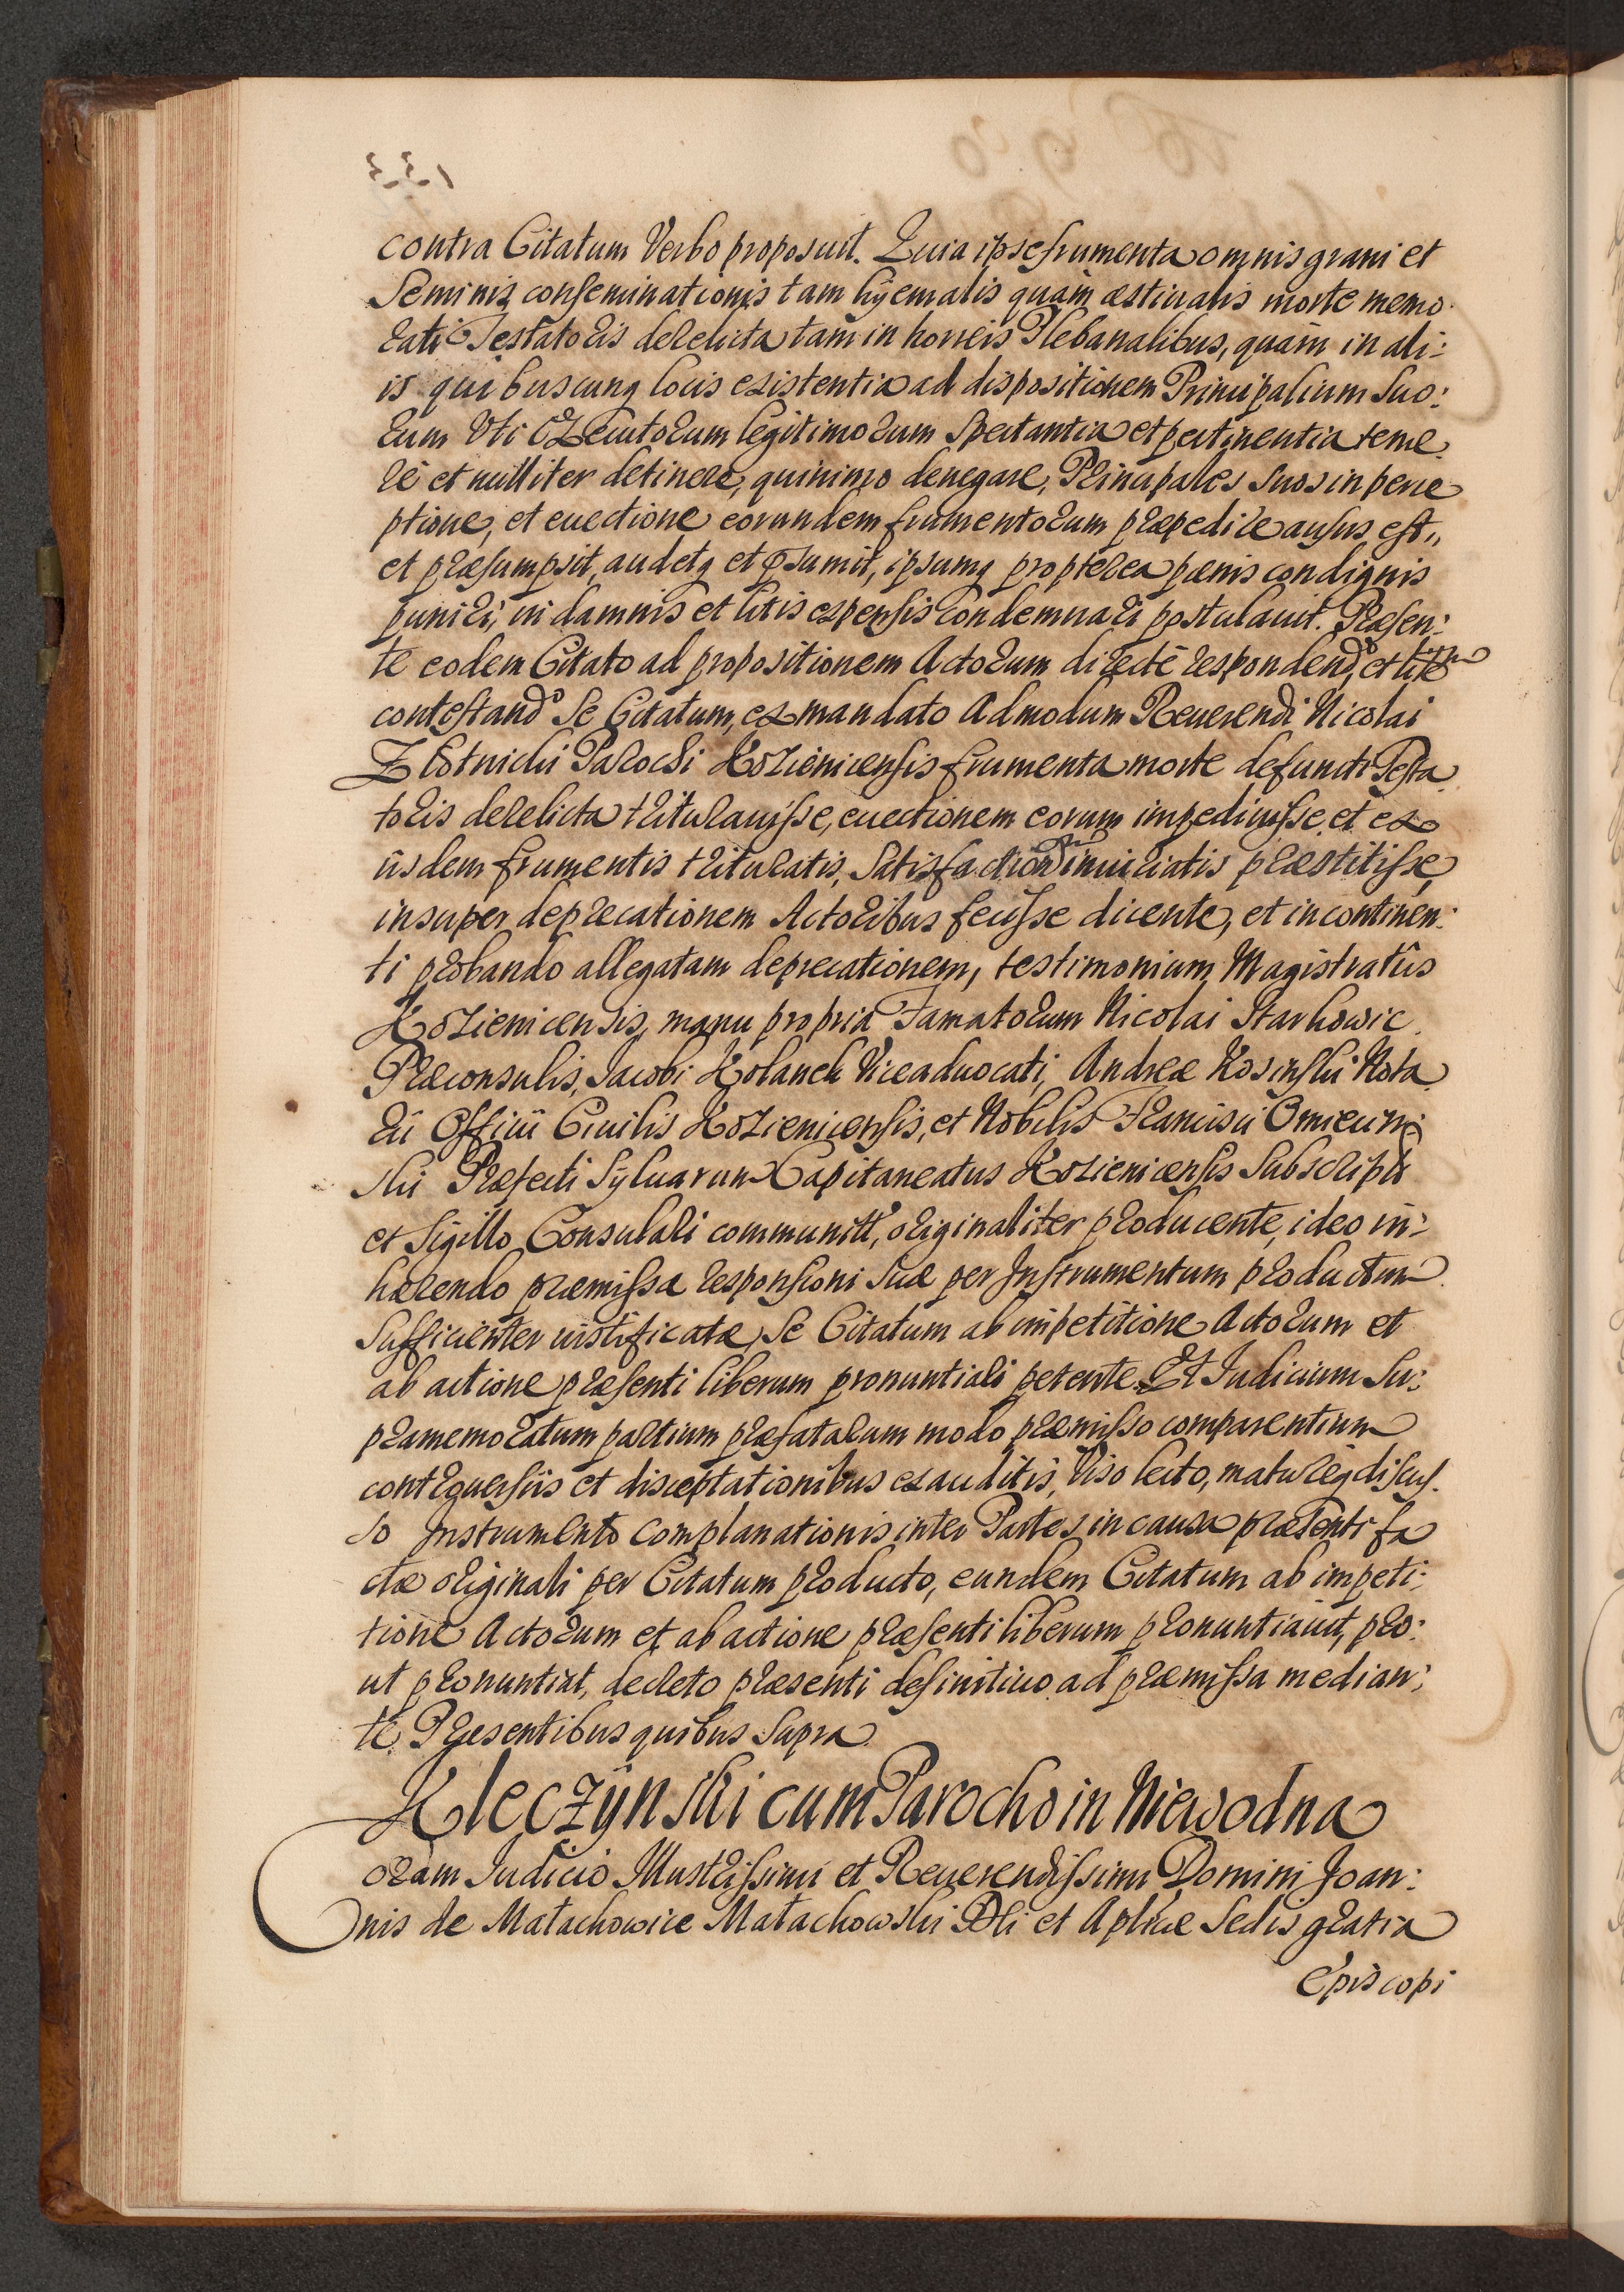 contra Citatum Verbo proposuit. Quia ipse frumenta omnis grani et
Seminis conseminationis tam hÿemalis quàm æstiualis morte memo-
rati Testatoris derelicta tam in horreis Plebanalibus, quàm in ali:
is quibuscunq locis existentia ad dispositionem Principalium Suo:
rum Vti Executorum legitimorum Spectantia et pertinentia teme
rè et nulliter detinere, quinimo denegare, Principales Suos in perce
ptione, et euectione eorundem frumentorum præpedire ausus est,,
et præsumpsit, audetq et præsumit, ipsumq propterea pænis condignis
puniri, in damnis et litis expensis condemnari postulauit. Præsen:
te eodem Citato ad propositionem Actorum directè respondendo, et litem
contestando Se Citatum, ex mandato Admodum Reuerendi Nicolai
Zlotnicki Parochi Kozienicensis frumenta morte defuncti Testa
toris derelicta triturauisse, euectionem eorum impediuisse, et ex
ijsdem frumentis trituratis, Satisfactionem iniuriatis præstitisse,
insuper deprecationem Actoribus fecisse dicente, et incontinen:
ti probando allegatam deprecationem, testimonium Magistratûs
Kozienicensis, manu propria Famatorum Nicolai Starkowic
Præconsulis, Jacobi Kolanek Viceaduocati, Andreæ Kosinski Nota
rii Officii Ciuilis Kozienicensis, et Nobilis Francisci Omiecin:
ski Præfecti Syluarum Capitaneatus Kozienicensis Subscripti
et Sigillo Consulari communiti, originaliter producente, ideo in:
hærendo præmissæ responsioni Suæ per Instrumentum productum
Sufficienter iustificatæ, Se Citatum ab impetitione Actorum et
ab actione præsenti liberum pronuntiari petente. Et Iudicium Su:
pramemoratum partium præfatarum modo præmisso comparentium
controuersiis et disceptationibus exauditis, Viso lecto, maturèq discus.
so Instrumento complanationis inter Partes in causa præsenti fa
ctæ originali per Citatum producto, eundem Citatum ab impeti:
tione Actorum et ab actione præsenti liberum pronuntiauit, pro:
ut pronuntiat, decreto præsenti definitiuo ad præmissa median:
te. Præsentibus quibus Supra
Kleczÿnski cum Parocho in Niewodna
Coram Iudicio Illustrissimi et Reuerendissimi Domini Joan:
nis de Małachowice Małachowski Dei et Aplicæ Sedis gratia
Episcopi